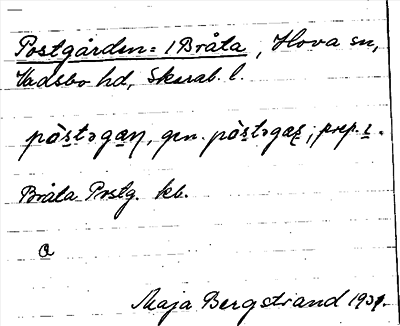 Postgården = 1 Bråta, Hova sn,
Vadsbo hd, Skarab. l.
pòstəgaɳ, gen. pòstəgaʂ; prep. ɪ.
Bråta Postg. kb.
a
Maja Bergstrand 1939.